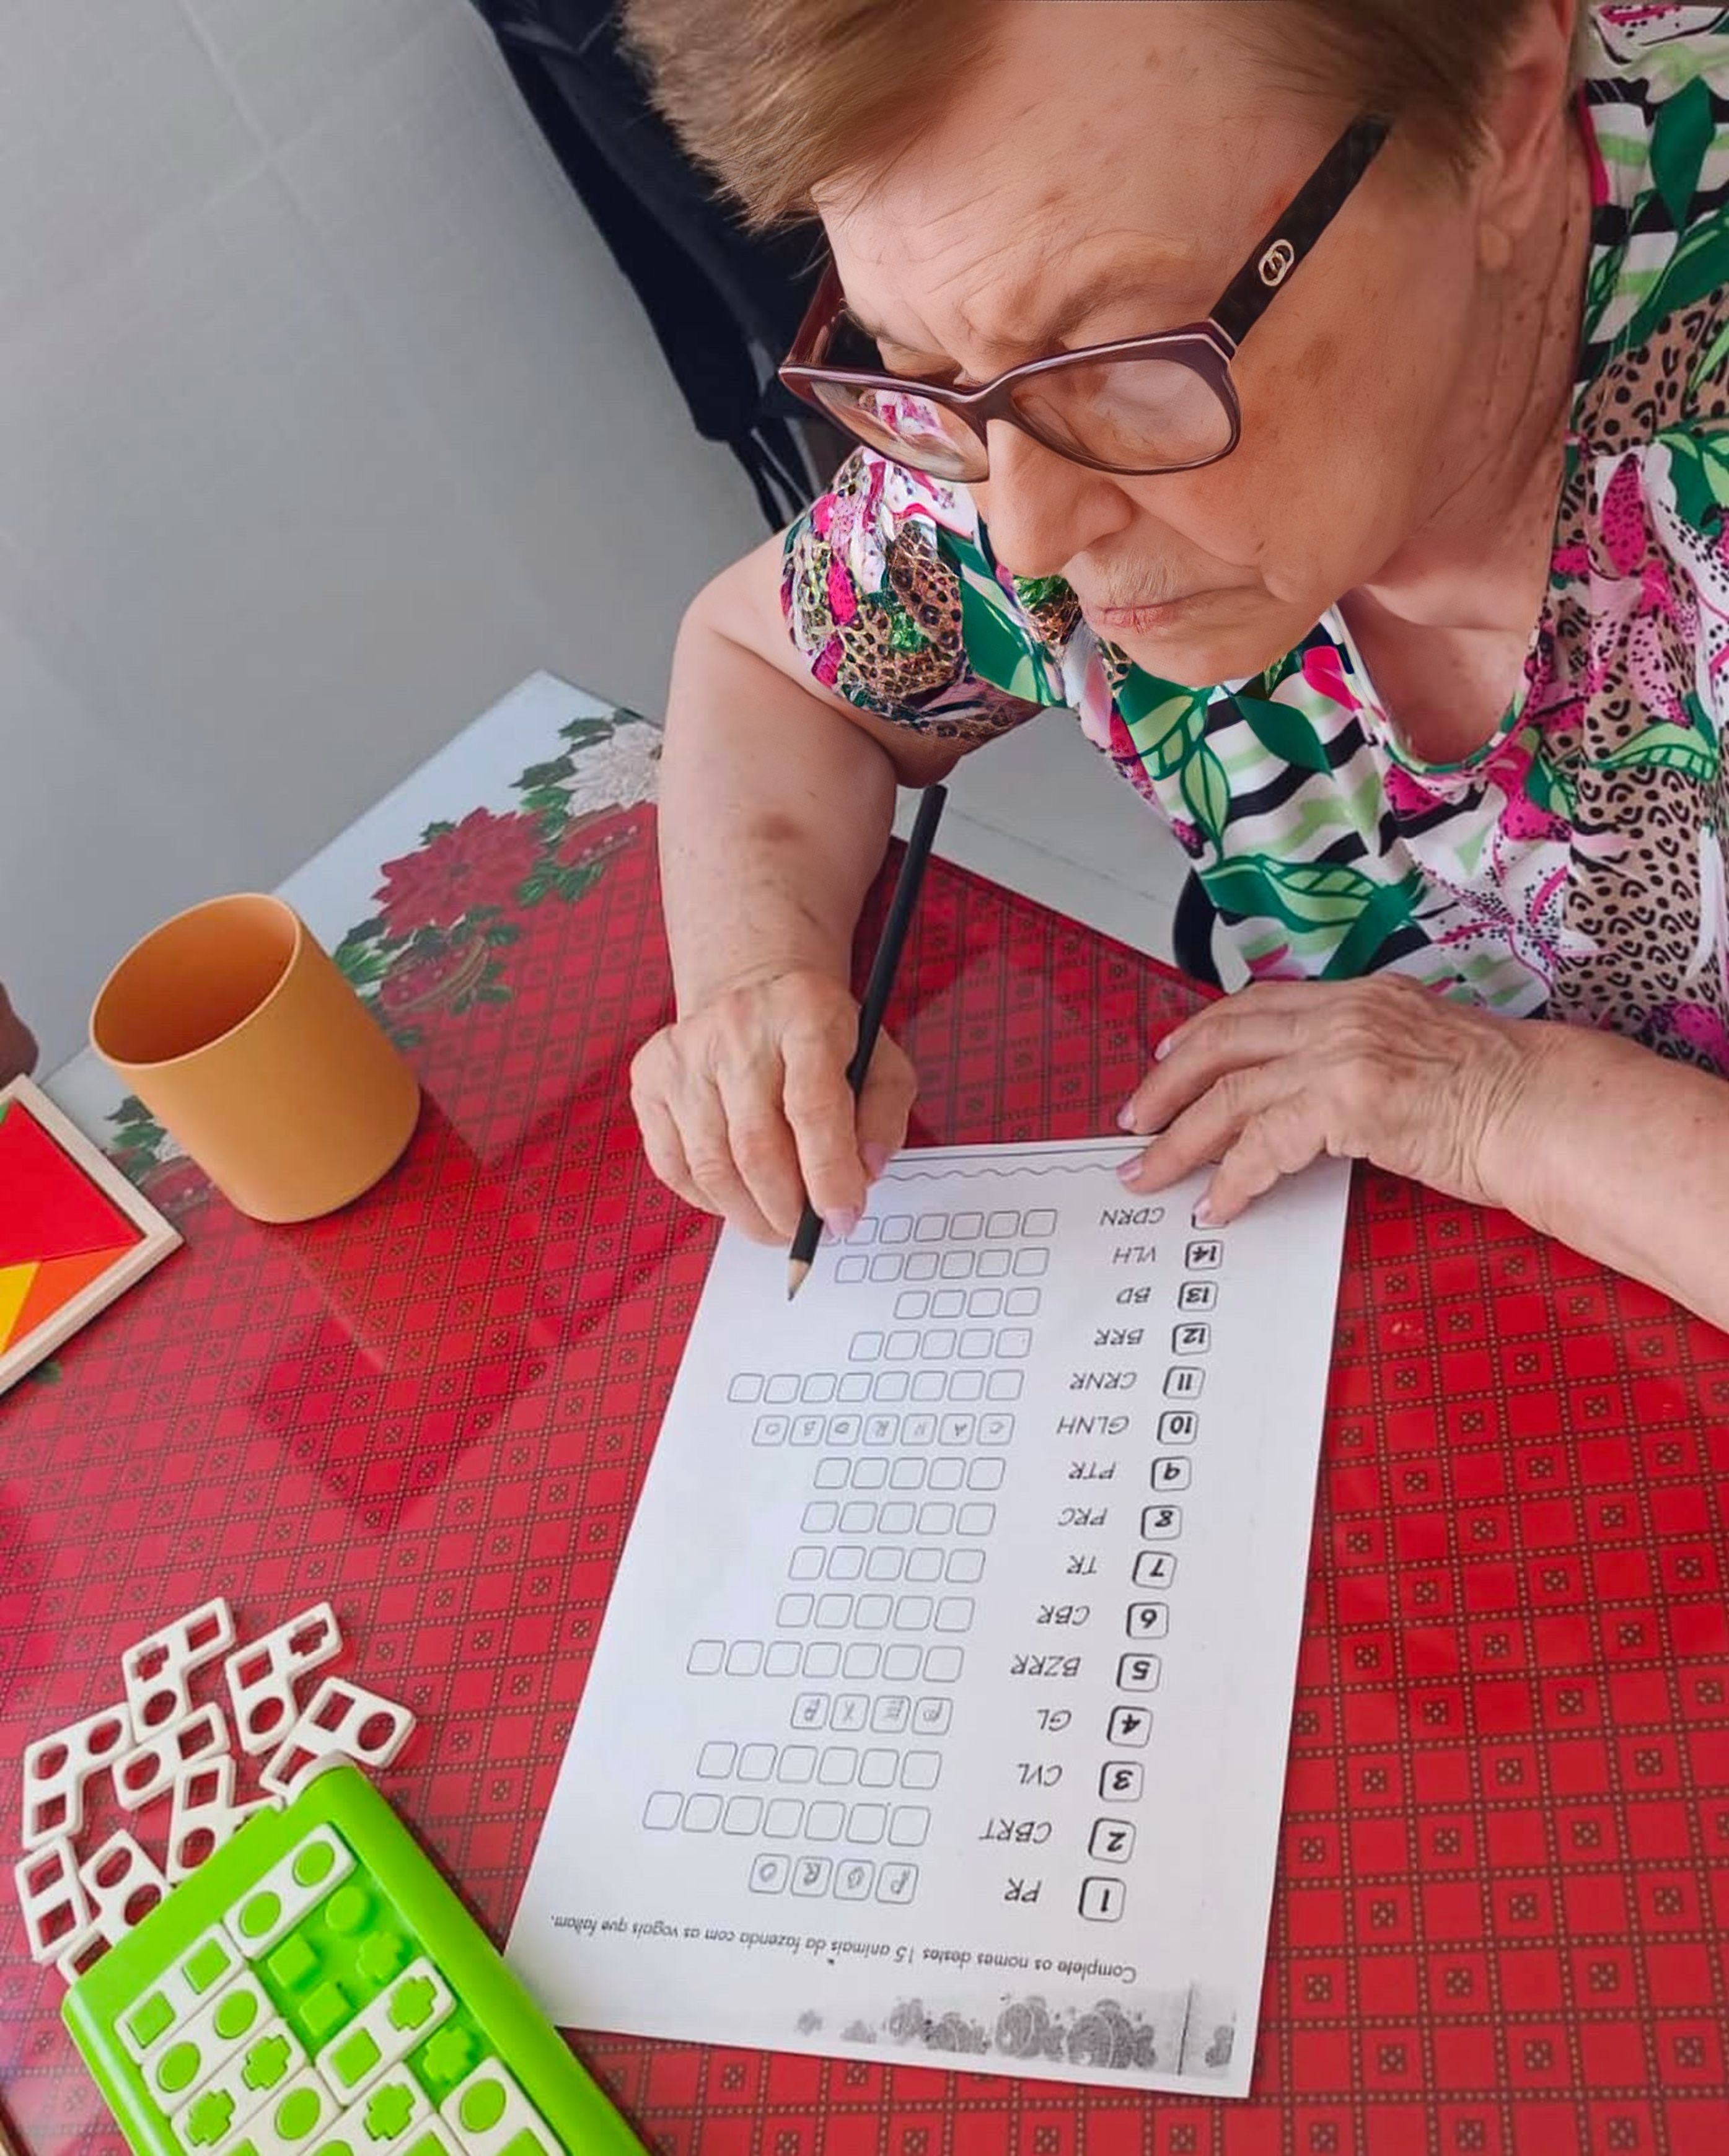 Complete os nomes destes 15 animais da fazenda com as vogais que faltam.
1 PR P O R O
2 CBRT
3 CVL
4 GL
5 BZRR
6 CBR
7 TR
8 PRC
9 PTR
10 GLNH
11 CRNR
12 BRR
13 BD
14 VLH
CDRN